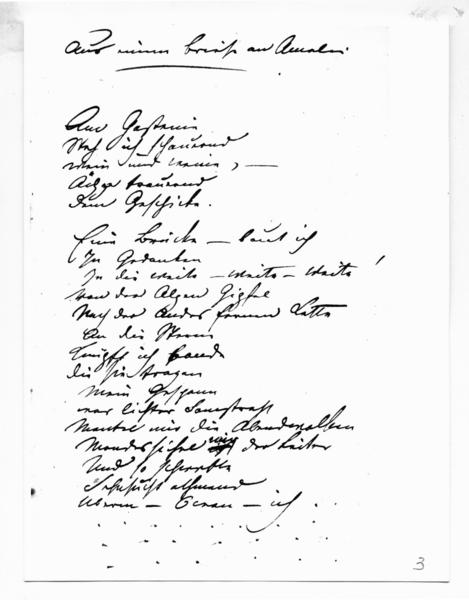 Aus einem Briefe an Amalie
Am Gestein
Steh ich schauernd
wein und weine, —
Ächze trauernd
Dem Geschicke.
Eine Brücke — baut ich
In Gedanken
In die weite — weite — weite !
von der Alpen Gipfel
Nach der Anden fernen Kette
An die Sterne
Knüpft ich Bande
die sie tragen
Mein Gespann
war lichter Sonnstrahl
Mantel mir die Abendwolken
Mondessichel der Leiter
Und so schwebte
Sehnsucht athmend
Überm — Ocean — ich . .
3